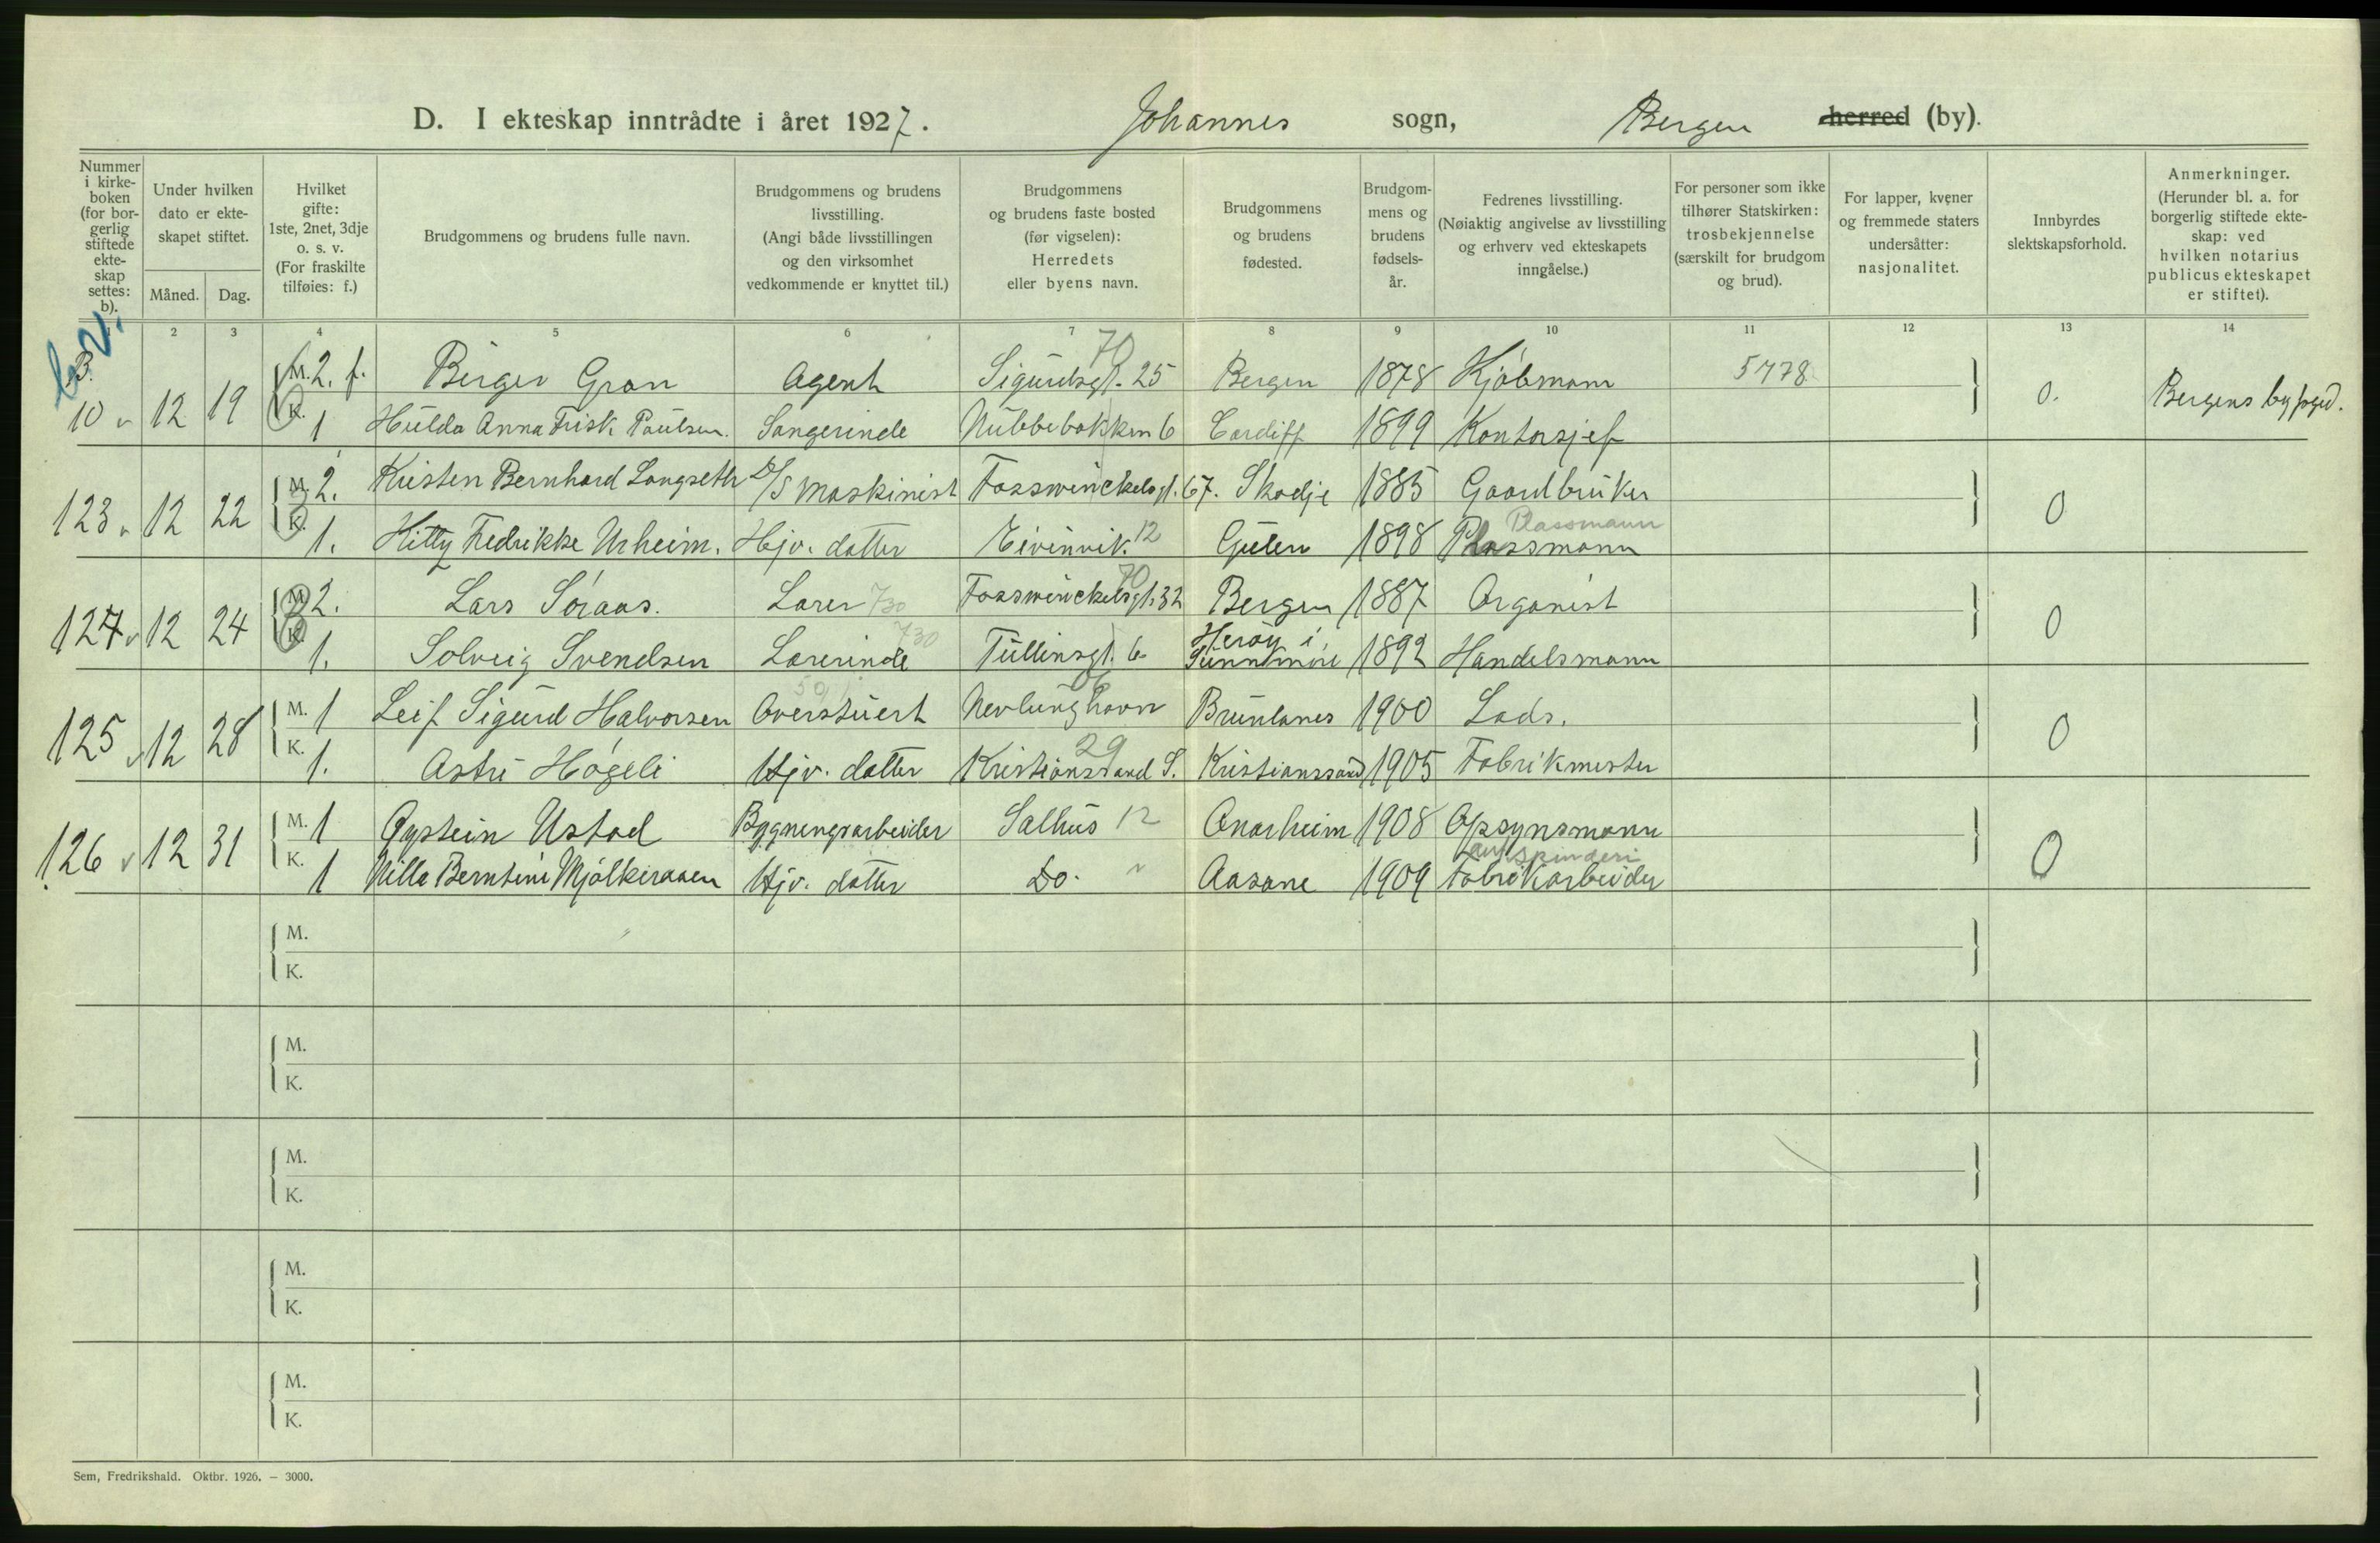 D. I ekteskap inntrådte i året 1927. Johannes sogn, Bergen herred (by).
Nummer i kirke- boken (for bor- gerlig stiftede ekte- skap settes: b).
Under hvilken dato er ekte- skapet stiftet.
Måned. Dag.
Hvilket gifte: 1ste, 2net, 3dje o. s. v. (For fraskilte tilføies: f.)
Brudgommens og brudens fulle navn.
Brudgommens og brudens livsstilling. (Angi både livsstillingen og den virksomhet vedkommende er knyttet til.)
Brudgommens og brudens faste bosted (før vigselen): Herredets eller byens navn.
Brudgommens og brudens fødested.
Brudgom- mens og brudens fødsels- år.
Fedrenes livsstilling. (Nøiaktig angivelse av livsstilling og erhverv ved ekteskapets inngåelse.)
For personer som ikke tilhører Statskirken: trosbekjennelse (særskilt for brudgom og brud).
For lapper, kvener og fremmede staters undersåtter: nasjonalitet.
Innbyrdes slektskapsforhold.
Anmerkninger. (Herunder bl. a. for borgerlig stiftede ekte- skap: ved hvilken notarius publicus ekteskapet er stiftet).
1 2 3 4 5 6 7 8 9 10 11 12 13 14
B. 10 12 19 M. 2. f. Birger Gran Agent Sigurdsgt. 25 70 Bergen 1878 Kjøbmann 5778 0. Bergens byfogd.
K. 1 Hulda Anna Frisk Paulsen. Sangerinde Nubbebakken 6 Cardiff 1899 Kontorsjef
123 12 22 M. 2. Kristen Bernhard Langseth D/S Maskinist Fosswinckelsgt. 67. Skodje 1885 Gaardbruker 0
K. 1. Kitty Fredrikke Urheim. Hjv. datter Eivinvik. 12 Gulen 1898 Plassmann Plassmann
124 12 24 M. 2. Lars Søraas. Lærer 730 Fosswinckelsgt. 32 70 Bergen 1887 Organist 0
K. 1. Solveig Svendsen Lærerinde 730 Tullinsgt. 6 Herøy i Sunnmøre 1892 Handelsmann
125 12 28 M. 1 Leif Sigurd Halvorsen Overstuert Nevlunghavn Brunlanes 1900 Lods. 0
K. 1. Astri Høgeli Hjv. datter Kristiansand S. 29 Kristianssand 1905 Fabrikmester
126 12 31 M. 1 Øystein Ustad Bygningsarbeider Salhus 12 Onarheim 1908 Opsynsmann 0
K. 1 Nilla Berntine Mjølkeraaen Hjv. datter Do. Aasane 1909 Fabrikarbeider spinderi
M.
K.
M.
K.
M.
K.
M.
K.
M.
K.
Sem, Fredrikshald. Oktbr. 1926. – 3000.